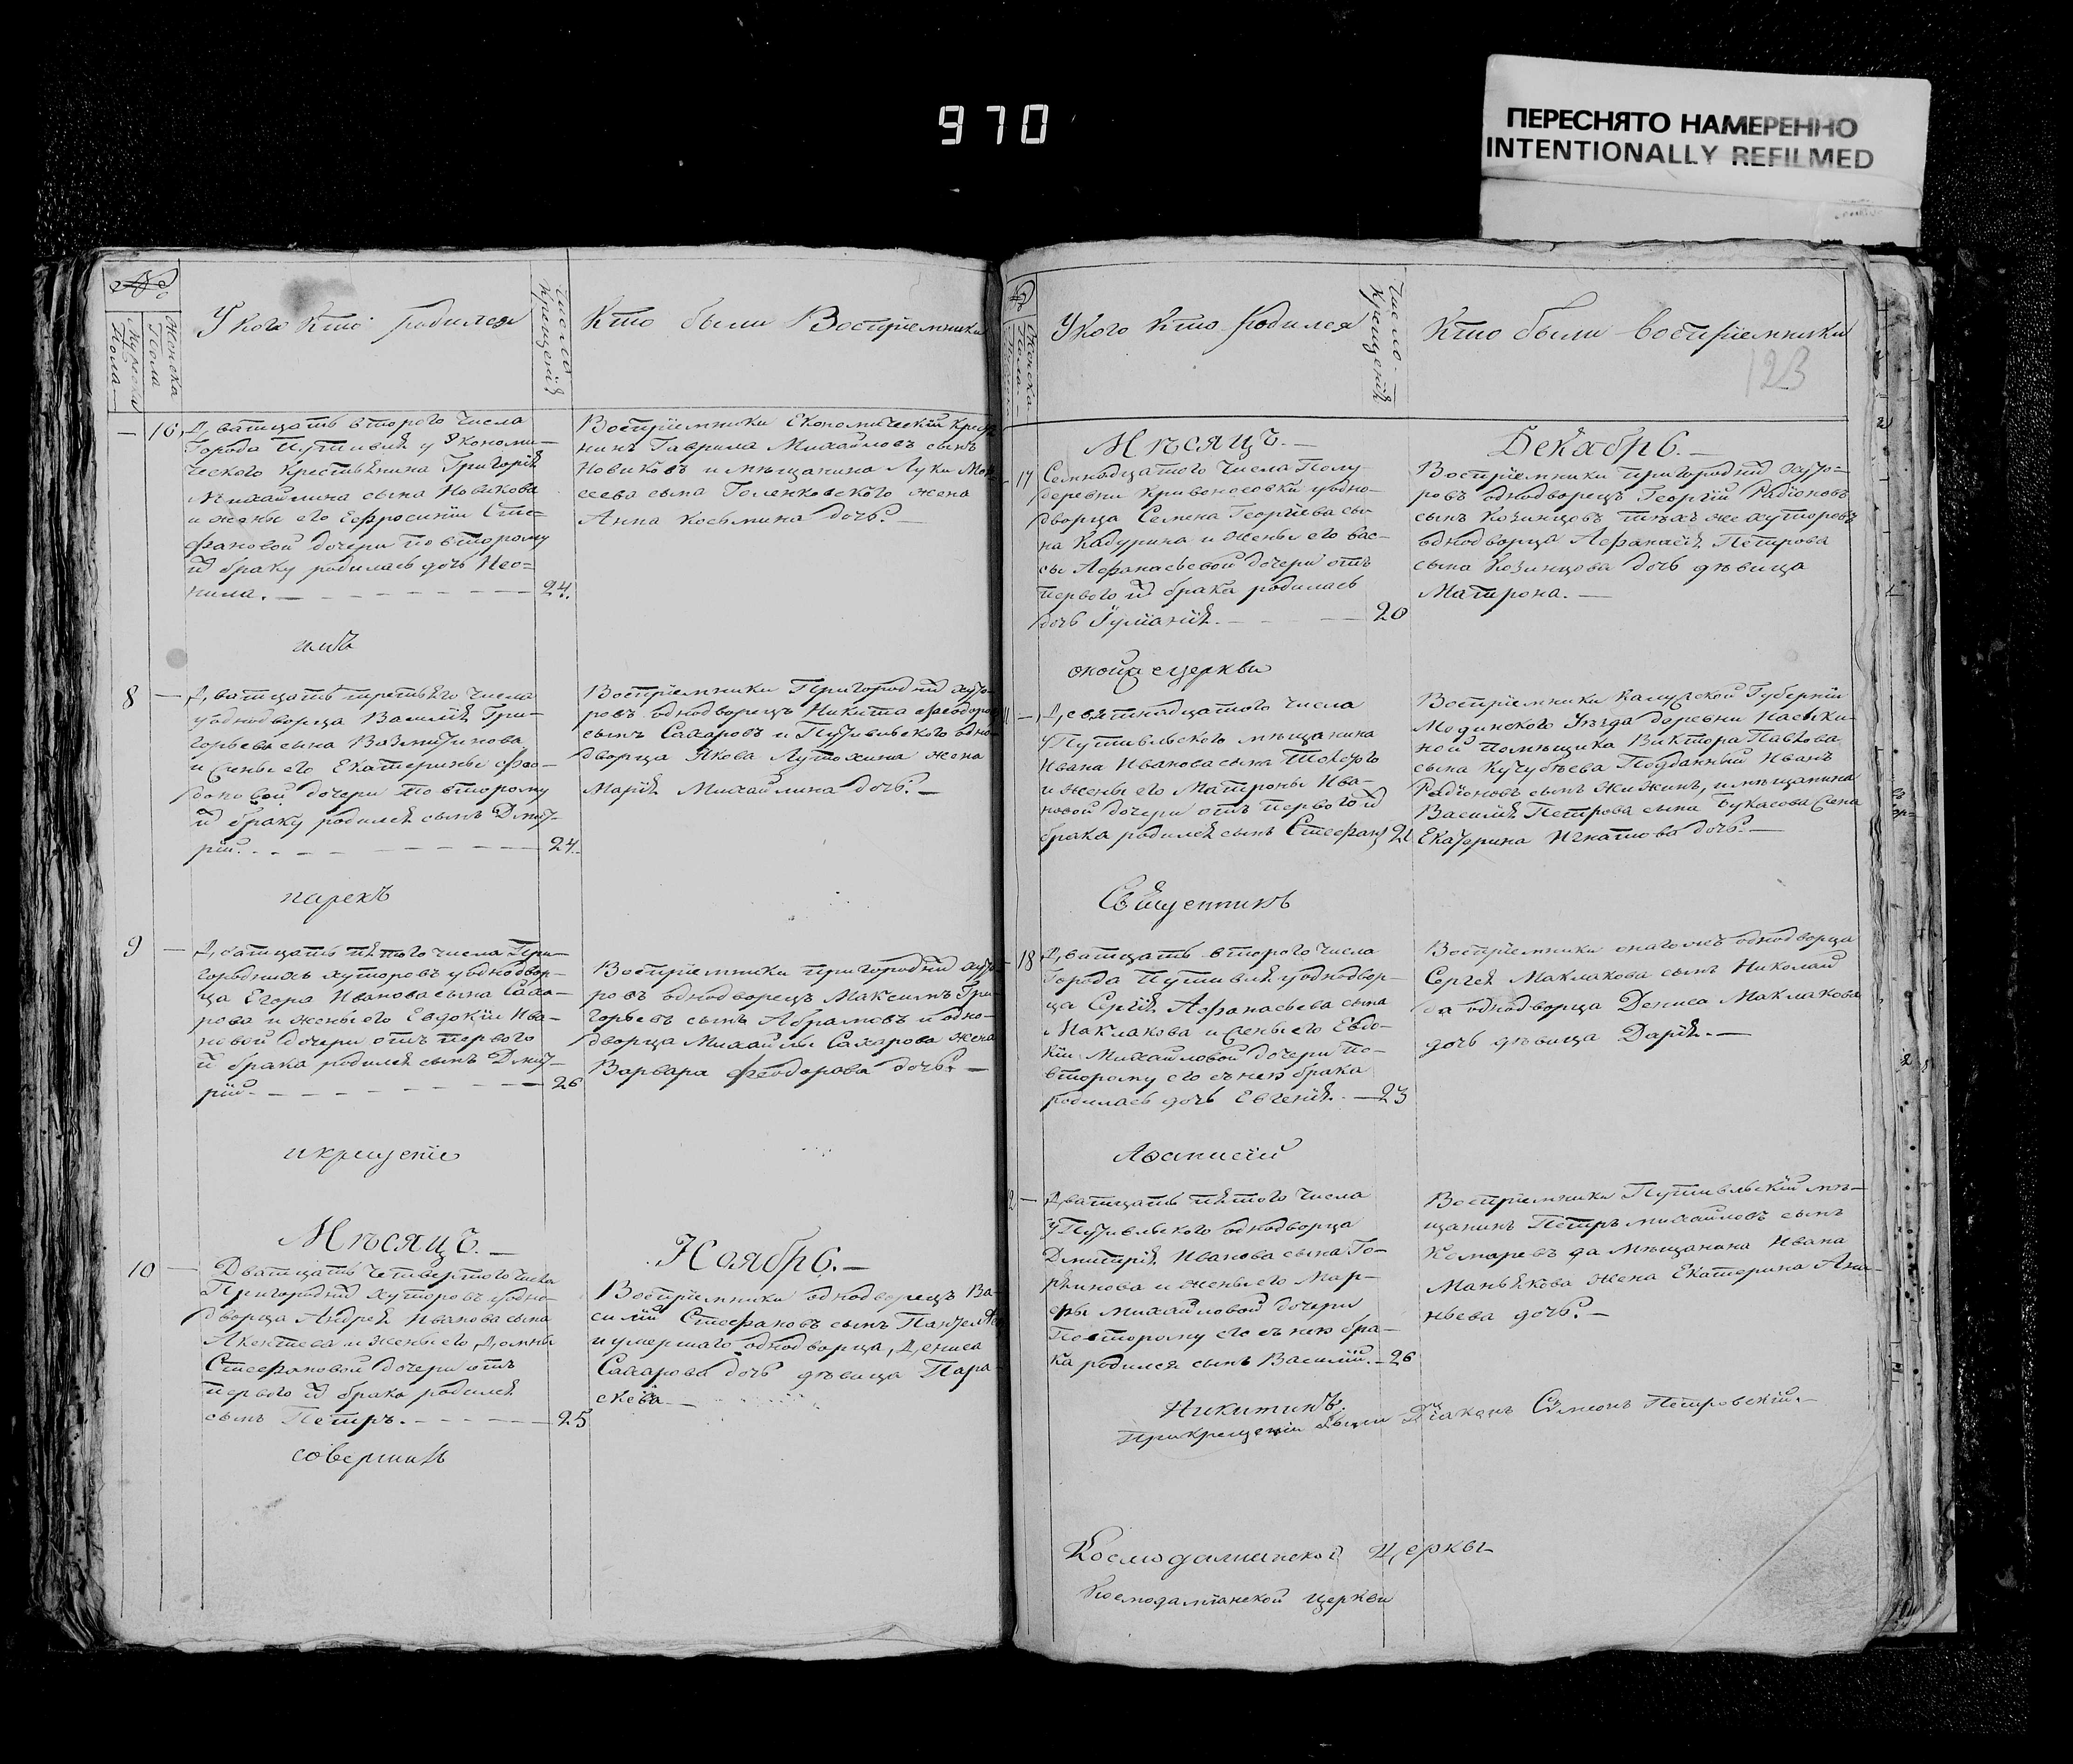 970
ПЕРЕСНЯТО НАМЕРЕННО
INTENTIONALLY REFILMED
№
Мужеска Пола
Женска Пола
У кого кто родился
Число Крещенія
Кто были Восприемники
16
Дватцать втораго числа
Города Путивля у Экономи-
ческого Крестьянина Григорія
Михайлина сына Новикова
и жены его Ефросиніи Сте-
фановой дочери по второму
браку родилась дочь Нео-
нила. 24.
Восприемники Економическій Кресть
нинъ Гаврила Михайловъ сынъ
Новиковъ и мѣщанина Луки Мои
сеева сына Голенковского жена
Анна Козьмина дочь.
имъ
8
Дватцать третьяго числа
у однодворца Василія Гри-
горьева сына
и жены его Екатерины Фео-
доровой дочери по второму
браку родился сынъ Дмит-
рій. 24.
Восприемники Пригородній хуто-
ровъ однодворецъ Никита Феодоровъ
сынъ Сахаровъ и Путивльского одно-
дворца Якова Лутохина жена
Марія Михайлина дочь.
нарекъ
9
Дватцать пятого числа При-
городнихъ хуторовъ у однодвор-
ца Егора Иванова сына Саха-
рова и жены его Евдокіи Ива-
новой дочери отъ первого
брака родился сынъ Дмит-
рій. 26
Восприемники пригородній хуто-
ровъ однодворецъ Максимъ Гри-
горьевъ сынъ Абрамовъ и одно-
дворца Михайлы Сахарова жена
Варвара Феодорова дочь.
и крещеніе
Мѣсяцъ. Ноябрь.
10
Дватцать четвертого числа
Пригородній хуторовъ у одно-
дворца Андрея Иванова сына
Акентиева и жены его Домны
Стефановой дочери отъ
первого брака родился
сынъ Петръ. 25
Восприемники однодворецъ Ва-
силій Стефановъ сынъ
и умершаго однодворца Дениса
Сахарова дочь дѣвица Пара-
скева.
совершилъ
№
Женска Пола
У кого кто родился
Число Крещенія
Кто были восприемники
123
Мѣсяцъ. Декабрь.
17
Семнадцатого числа Полу-
деревни Кривоносовки у одно-
дворца Семена Георгіева сы-
на Кадурина и жены его Вас-
сы Афанасьевой дочери отъ
первого брака родилась
дочь Іуліанія. 20
Восприемники пригородній хуто-
ровъ однодворецъ Георгій Радіоновъ
сынъ Козинцовъ тѣхъ же хуторовъ
однодворца Афанасія Петрова
сына Козинцова дочь дѣвица
Матрона.
оной церкви
11
Девятнадцатого числа
у Путивльского мѣщанина
Ивана Иванова сына
и жены его Матроны Ива-
новой дочери отъ первого
брака родился сынъ Стефанъ 21
Восприемники Калужской Губерніи
Уѣзда деревни
помѣщика Виктора Павлова
сына Кучубѣева Подданный Иванъ
Радіоновъ сынъ Жижинъ, и мѣщанина
Василія Петрова сына Букасова жена
Екатерина Игнатова дочь.
Священникъ
18
Дватцать второго числа
Города Путивля у однодвор-
ца Сергія Афанасьева сына
Маклакова и жены его Евдо-
кіи Михайловой дочери по
второму его съ нею брака
родилась дочь Евгенія. 23
Восприемники онагожъ однодворца
Сергея Маклакова сынъ Николай
да однодворца Дениса Маклакова
дочь дѣвица Дарія.
Афанасій
12
Дватцать пятого числа
У Путивльского однодворца
Дмитрія Иванова сына Го-
ряинова и жены его Мар-
фы Михайловой дочери
По второму его съ нею бра-
ка родился сынъ Василій. 26
Восприемники Путивльскій мѣ-
щанинъ Петръ Михайловъ сынъ
Комаревъ да мѣщанина Ивана
Манькова жена Екатерина Ана-
ньева дочь.
Никитинъ.
При крещеніи были Діаконъ Сѵмеонъ Петровскій.
Космодаміанской Церкви
Космодаміанской церкви